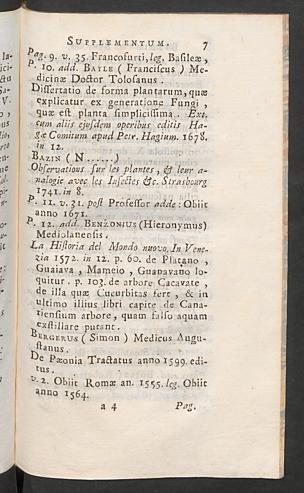 SUPPLEMENTUM. 7
Pag. 9. v. 35. Francofurti, leg. Basileæ,
P. 10. add. BAYLE ( Franciscus ) Me-
dicinæ Doctor Tolosanus.
Dissertatio de forma plantarum, quæ
explicatur ex generatione Fungi,
quæ est planta simplicissima. Ext.
cum aliis ejusdem operibus editis Ha-
gæ Comitum apud Petr. Hagium. 1678.
in 12.
BAZIN ( N......)
Observations sur les plantes, & leur a-
nalogie avec les Insectes &c. Strasbourg
1741. in 8.
P. 11. v. 31. post Professor adde: Obiit
anno 1671.
P. 12. add. BENZONIUS (Hieronymus)
Mediolanensis.
La Historia del Mondo nuovo. In Vene-
zia 1572. in 12. p. 60. de Platano,
Guaiava, Mameio, Guanavano lo-
quitur. p. 103. de arbore Cacavate,
de illa quæ Cucurbitas fert, & in
ultimo illius libri capite de Cana-
riensium arbore, quam falso aquam
exstillare putant.
BERGERUS ( Simon ) Medicus Augu-
stanus.
De Pæonia Tractatus anno 1599. edi-
tus.
v. 2. Obiit Romæ an. 1555. leg. Obiit
anno 1564.
a 4 Pag.